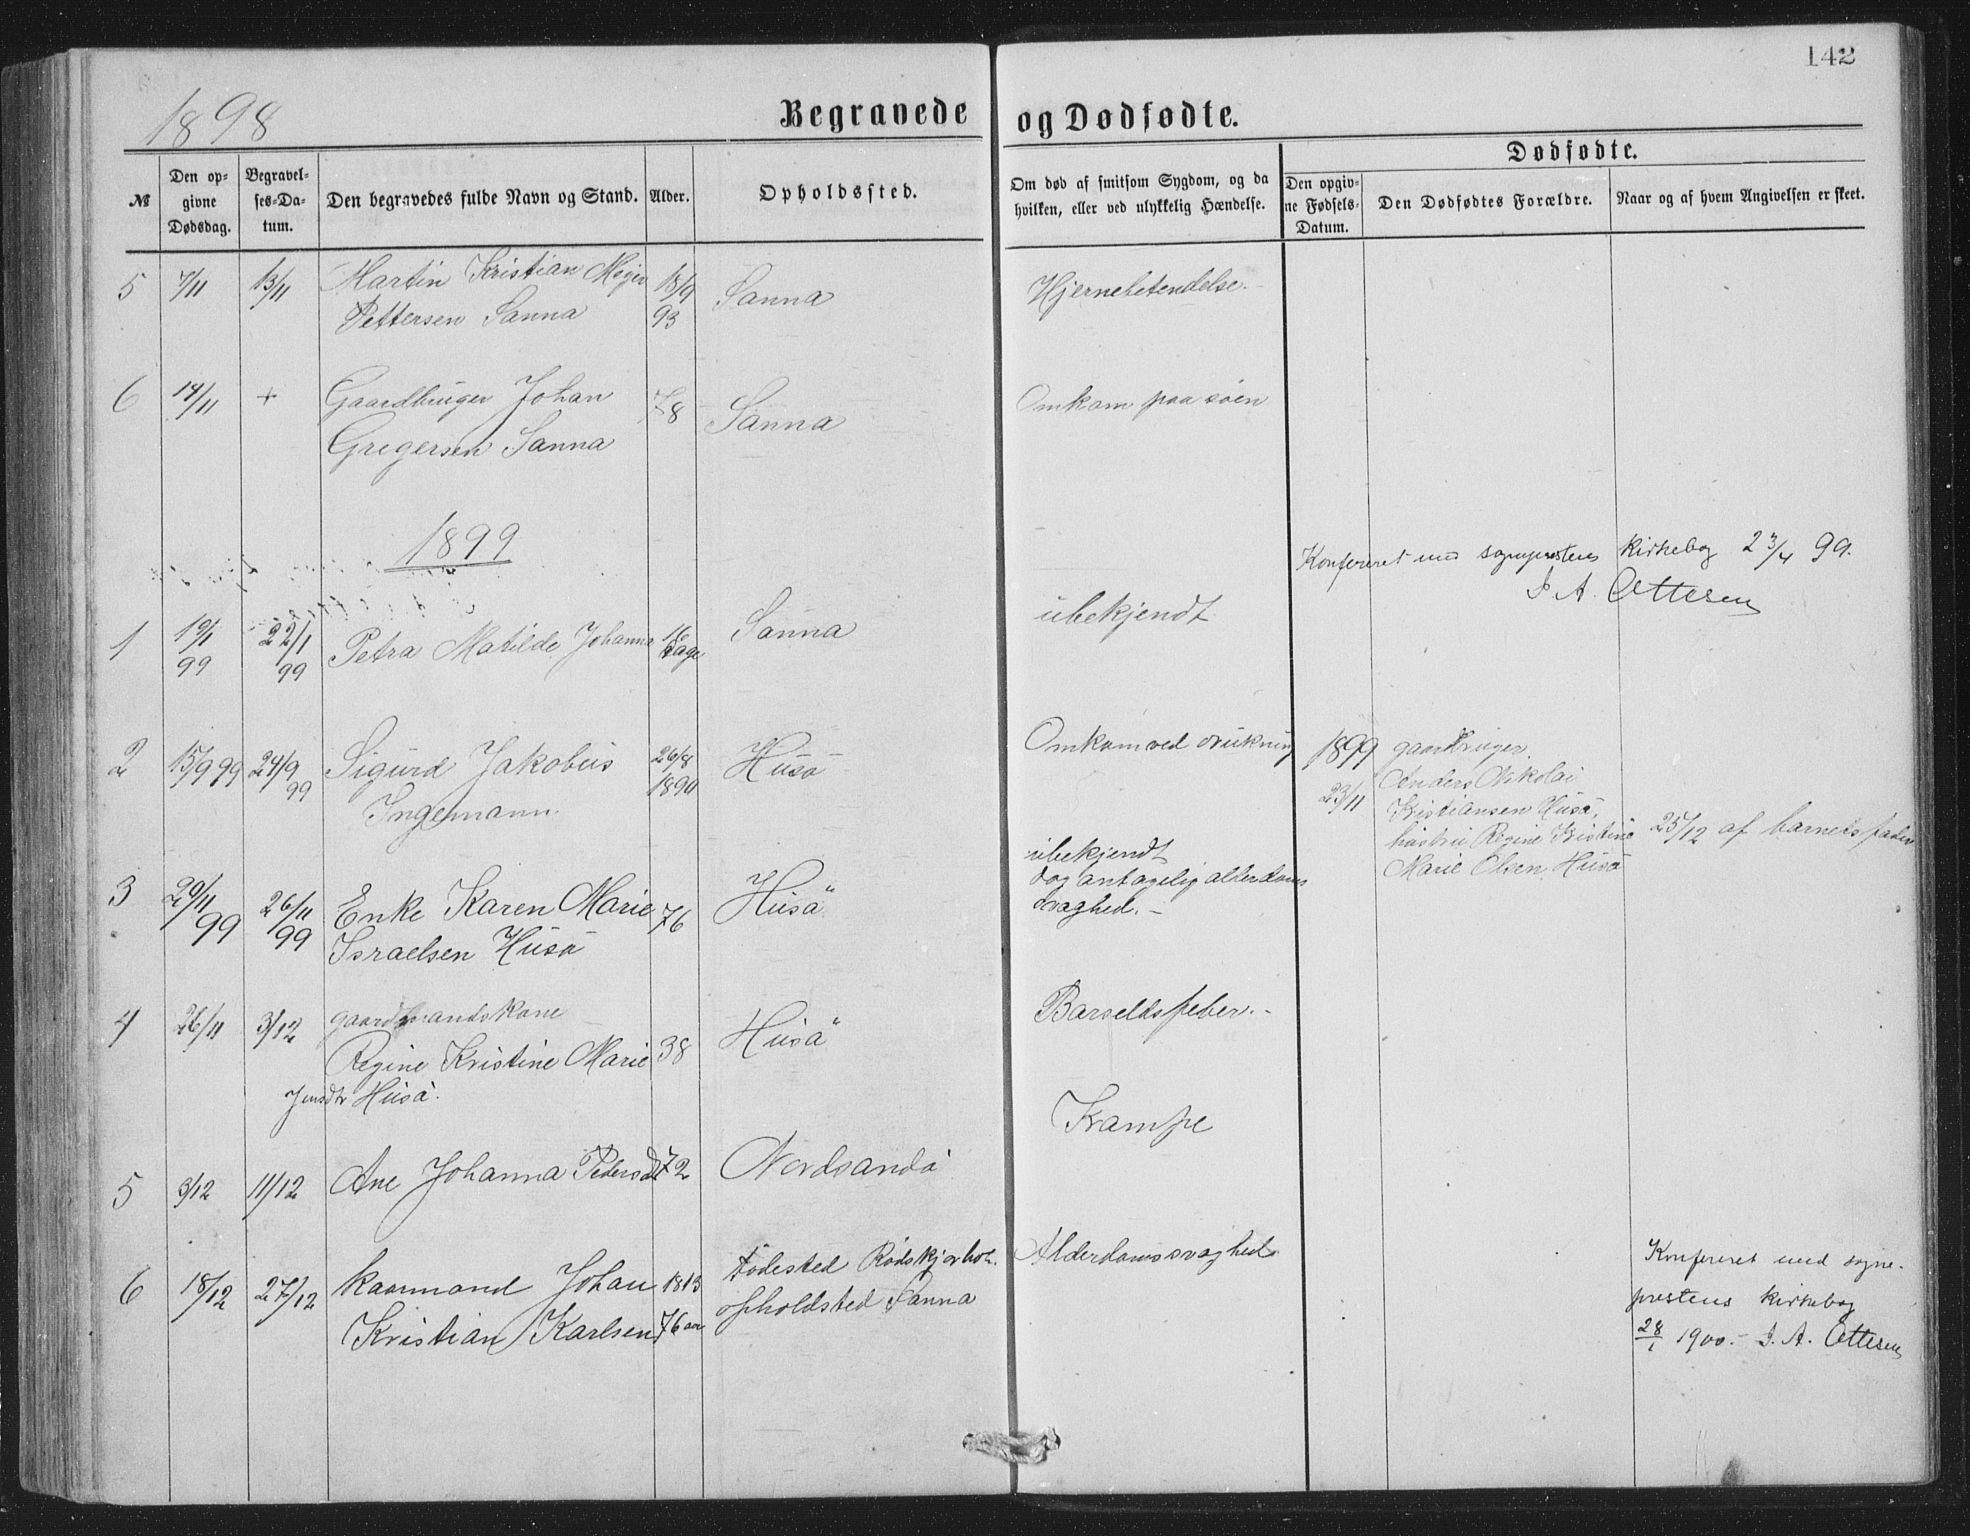 142
1898
Begravede og Dødfødte.
Dødfødte.
№
Den op-
givne
Dødsdag.
Begravel-
ses-Da-
tum.
Den begravedes fulde Navn og Stand.
Alder.
Opholdssted.
Om død af smitsom Sygdom, og da
hvilken, eller ved ulykkelig Hændelse.
Den opgiv-
ne Fødsels-
Datum.
Den Dødfødtes Forældre.
Naar og af hvem Angivelsen er skeet.
5 7/11 13/11 Martin Kristian Mejer 18/9 Sanna Hjernebetendelse.
Pettersen Sanna 93
6 14/11 + Gaardbruger Johan 78 Sanna Omkom paa søen
Gregersen Sanna
1899
Konfereret med sogneprestens kirkebog 23/4 99.
J. A. Ottesen
1 19/1 22/1 Petra Matilde Johanna 16 Sanna ubekjendt
99 99 dage
2 15/9 99 24/9 Sigurd Jakobus 26/8 Husö Omkom ved drukning
99 Ingemann 1890
1899 gaardbruger
23/11 Anders Nikolai
Kristiansen Husö,
hustru Regine Kristine
Marie Olsen Husö
25/12 af barnets fader
3 20/11 26/11 Enke Karen Marie 76 Husö
99 99 Israelsen Husö
ubekjendt
dog antagelig alderdoms
svaghed.
4 26/11 3/12 gaardmandskone
Regine Kristine Marie 38 Husö Barselsfeber.
Jensdtr Husö.
5 3/12 11/12 Ane Johanna Pedersdt 72 Nordsandö Krampe
6 18/12 27/12 kaarmand Johan 1813 födested Rödskjærholm.
Kristian Karlsen 76 aar opholdsted Sanna
Alderdomssvaghed
Konfereret med sogne-
prestens kirkebog
28/1 1900. - J. A. Ottesen